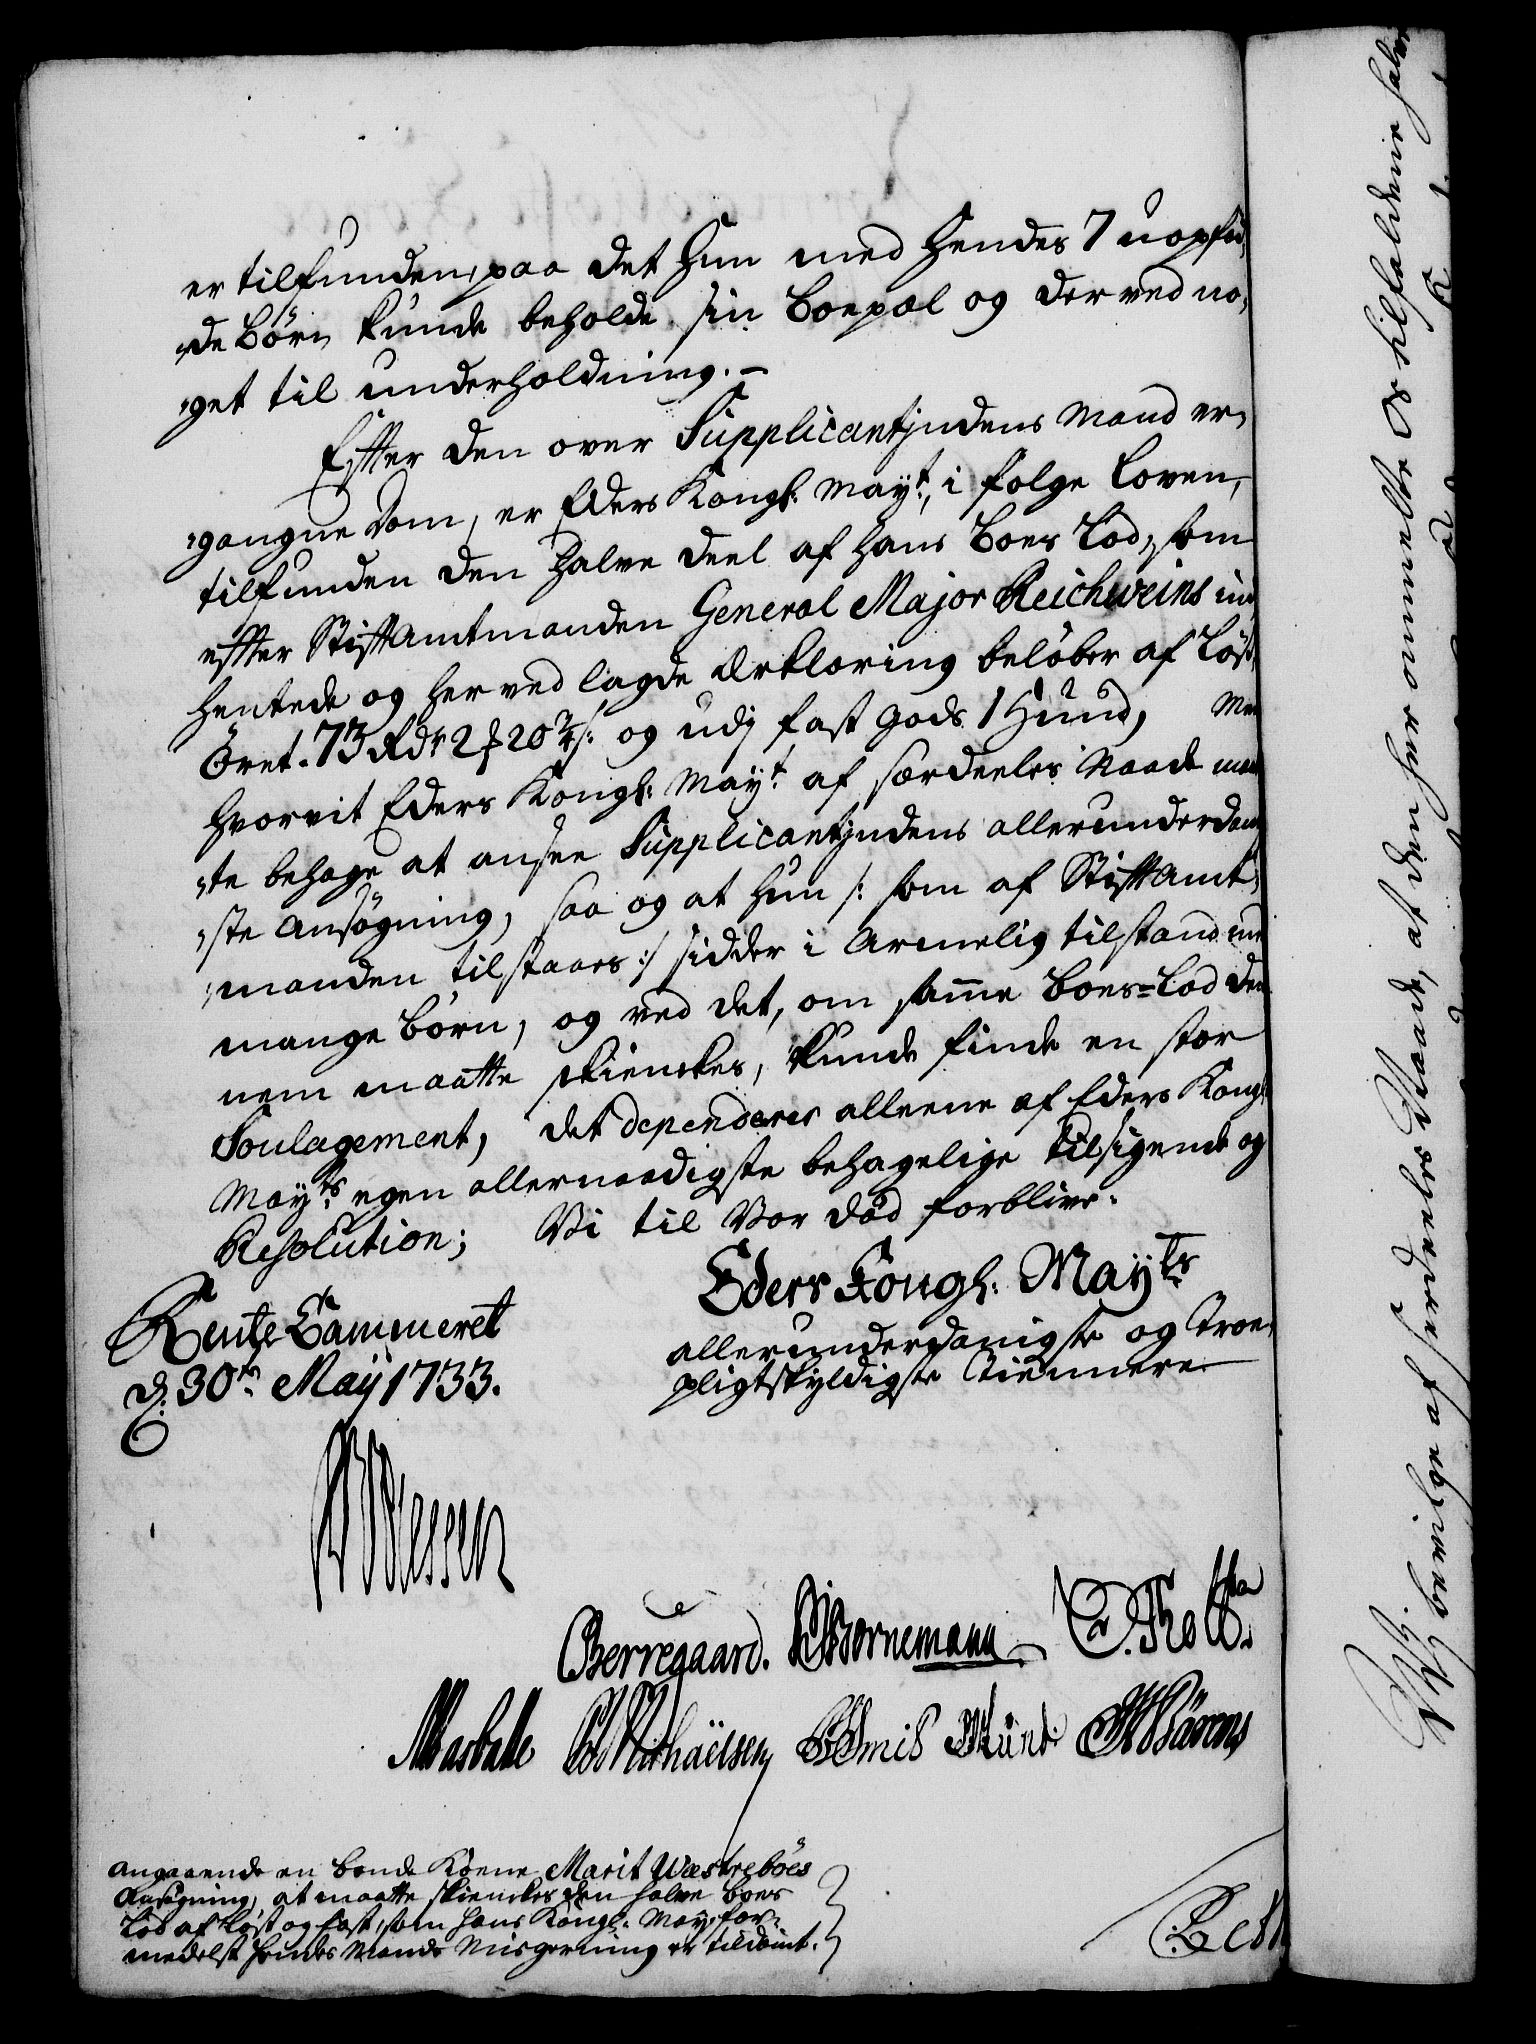 er tilfunden, paa det hun med hendes 7 uopfød„
„de børn kunde beholde sin boepæl og derved no„
„get til underholdning.—
Efter den over Supplicantjndens Mand er„
„gangne dom, er Eders Kongl: Mayt., i følge loven,
tilfunden den halve deel af hans boes lod, som
effter Stiftamtmanden General Major Reichweins ind
hentede og herved lagde Erklæring beløber af løs
Öret. 73 Rdr 2 ƒ 20 ¾ s: og udj fast gods 1 Hund,
hvorvit Eders Kongl: Mayt. af særdeeles Naade maat
„te behage at ansee Supplicantjndens allerunderdanig
„ste ansøgning, saa og at hun /: som af Stiftamt„
„manden tilstaaes :/ sidder i armelig tilstand med
mange børn, og ved det, om samme boes-lod den
nem maatte skienkes, kunde finde en stor
Soulagement, det dependerer alleene af Eders Kongl:
Mayts egen allernaadigste behagelige tilsigende og
Resolution; Vi til Vor død forblive.
Eders Kongl: Mayts
Rente Cammeret
d: 30te May 1733.
allerunderdanigste og troe„
pligtskyldigste tiennere
Berregaard. Bornemann T. Holst
Michaëlsen Smid
angaaende en bonde Koene Marit Wæstrebøes
Ansøgning, at maatte skienkes den halve boes
lod af løst og fast, som hans Kongl: May. for„
medelst hendes Mands Misgerning er tildømt.
Vi bevilge af særdeeles Naade, at den her ommelte os tilfaldene halve